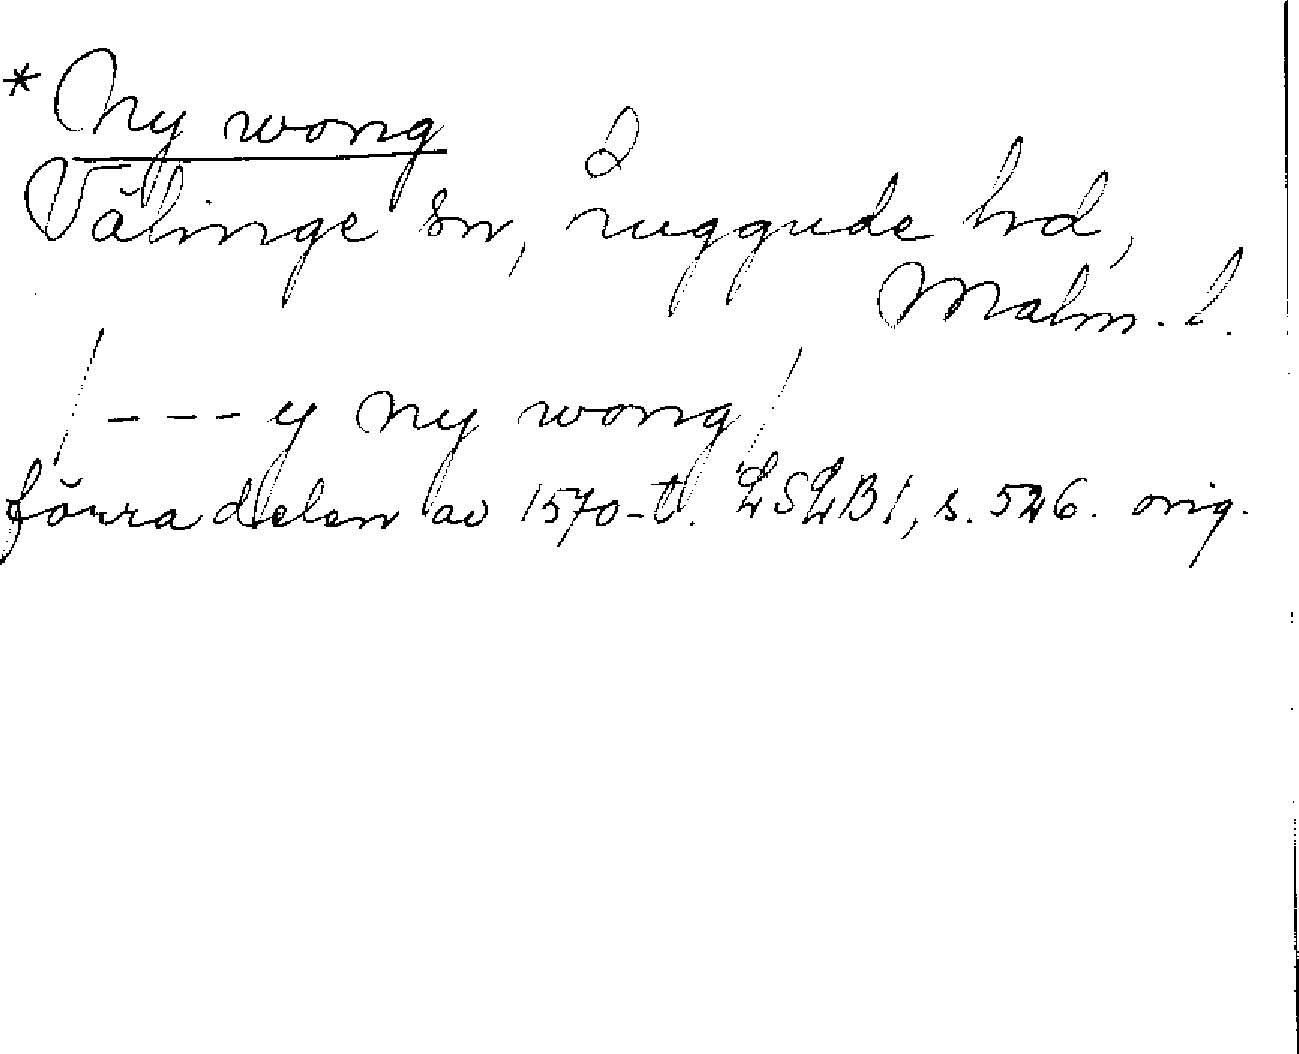 * Ny wong
Välinge sn, Luggude hd,
Malm. l.
/ - - - y ny wong /
förra delen av 1570-t. LSLB 1, s. 526. orig.